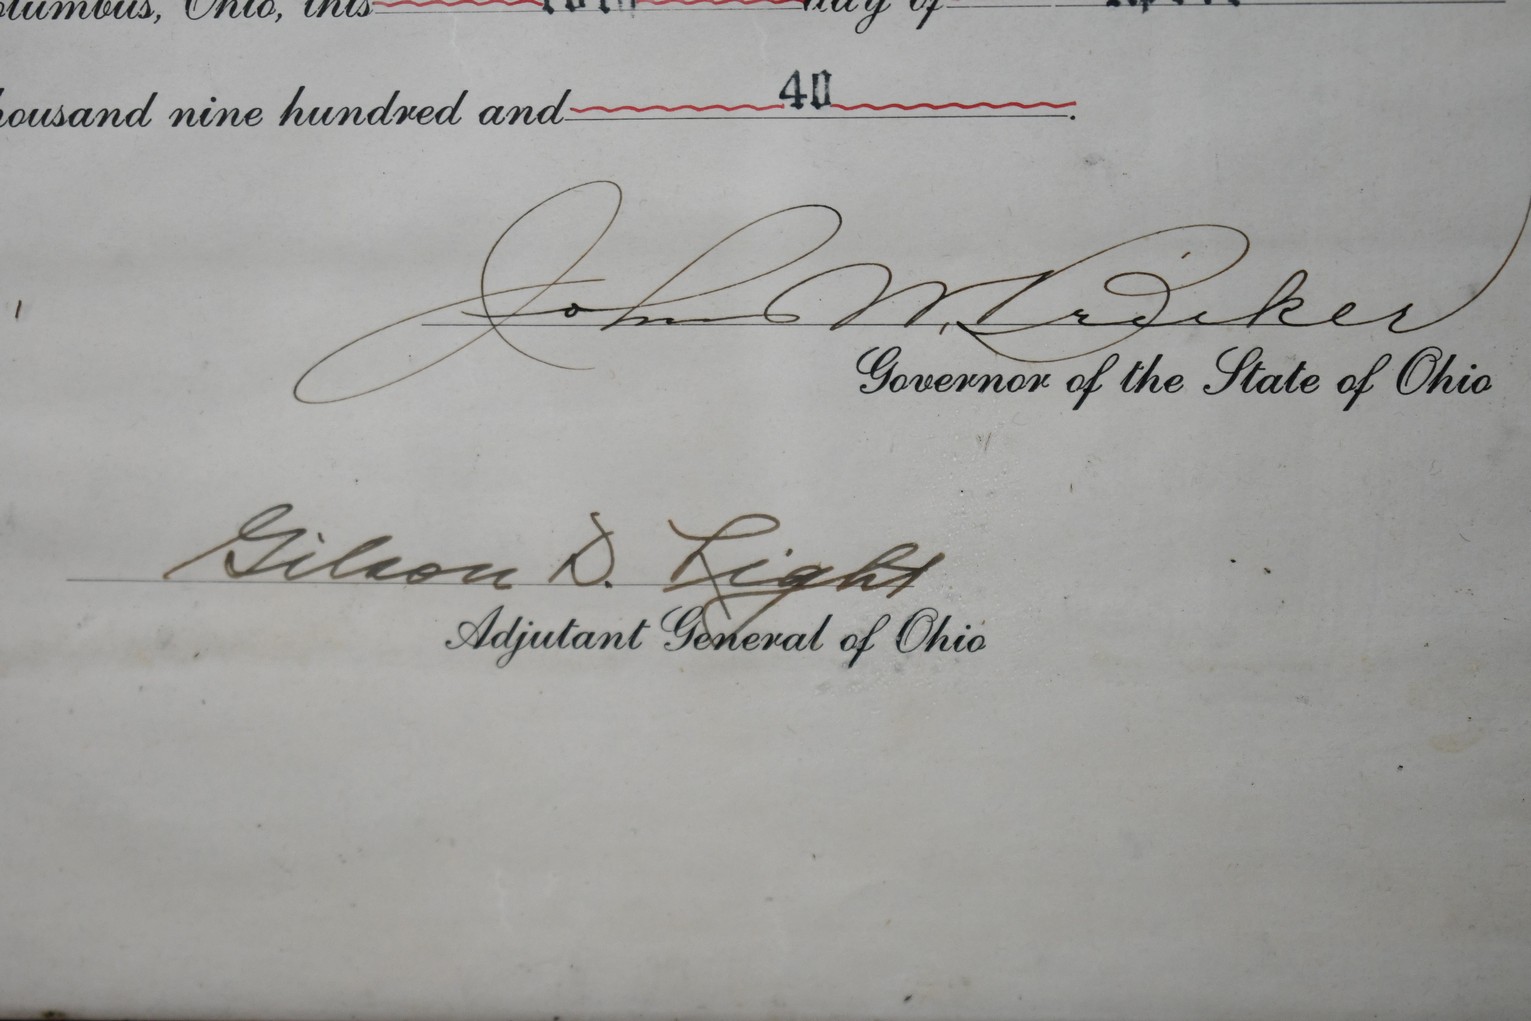 Ohio, this day of
nine hundred and 40.
John W. Bricker
Governor of the State of Ohio
Gilson D. Light
Adjutant General of Ohio